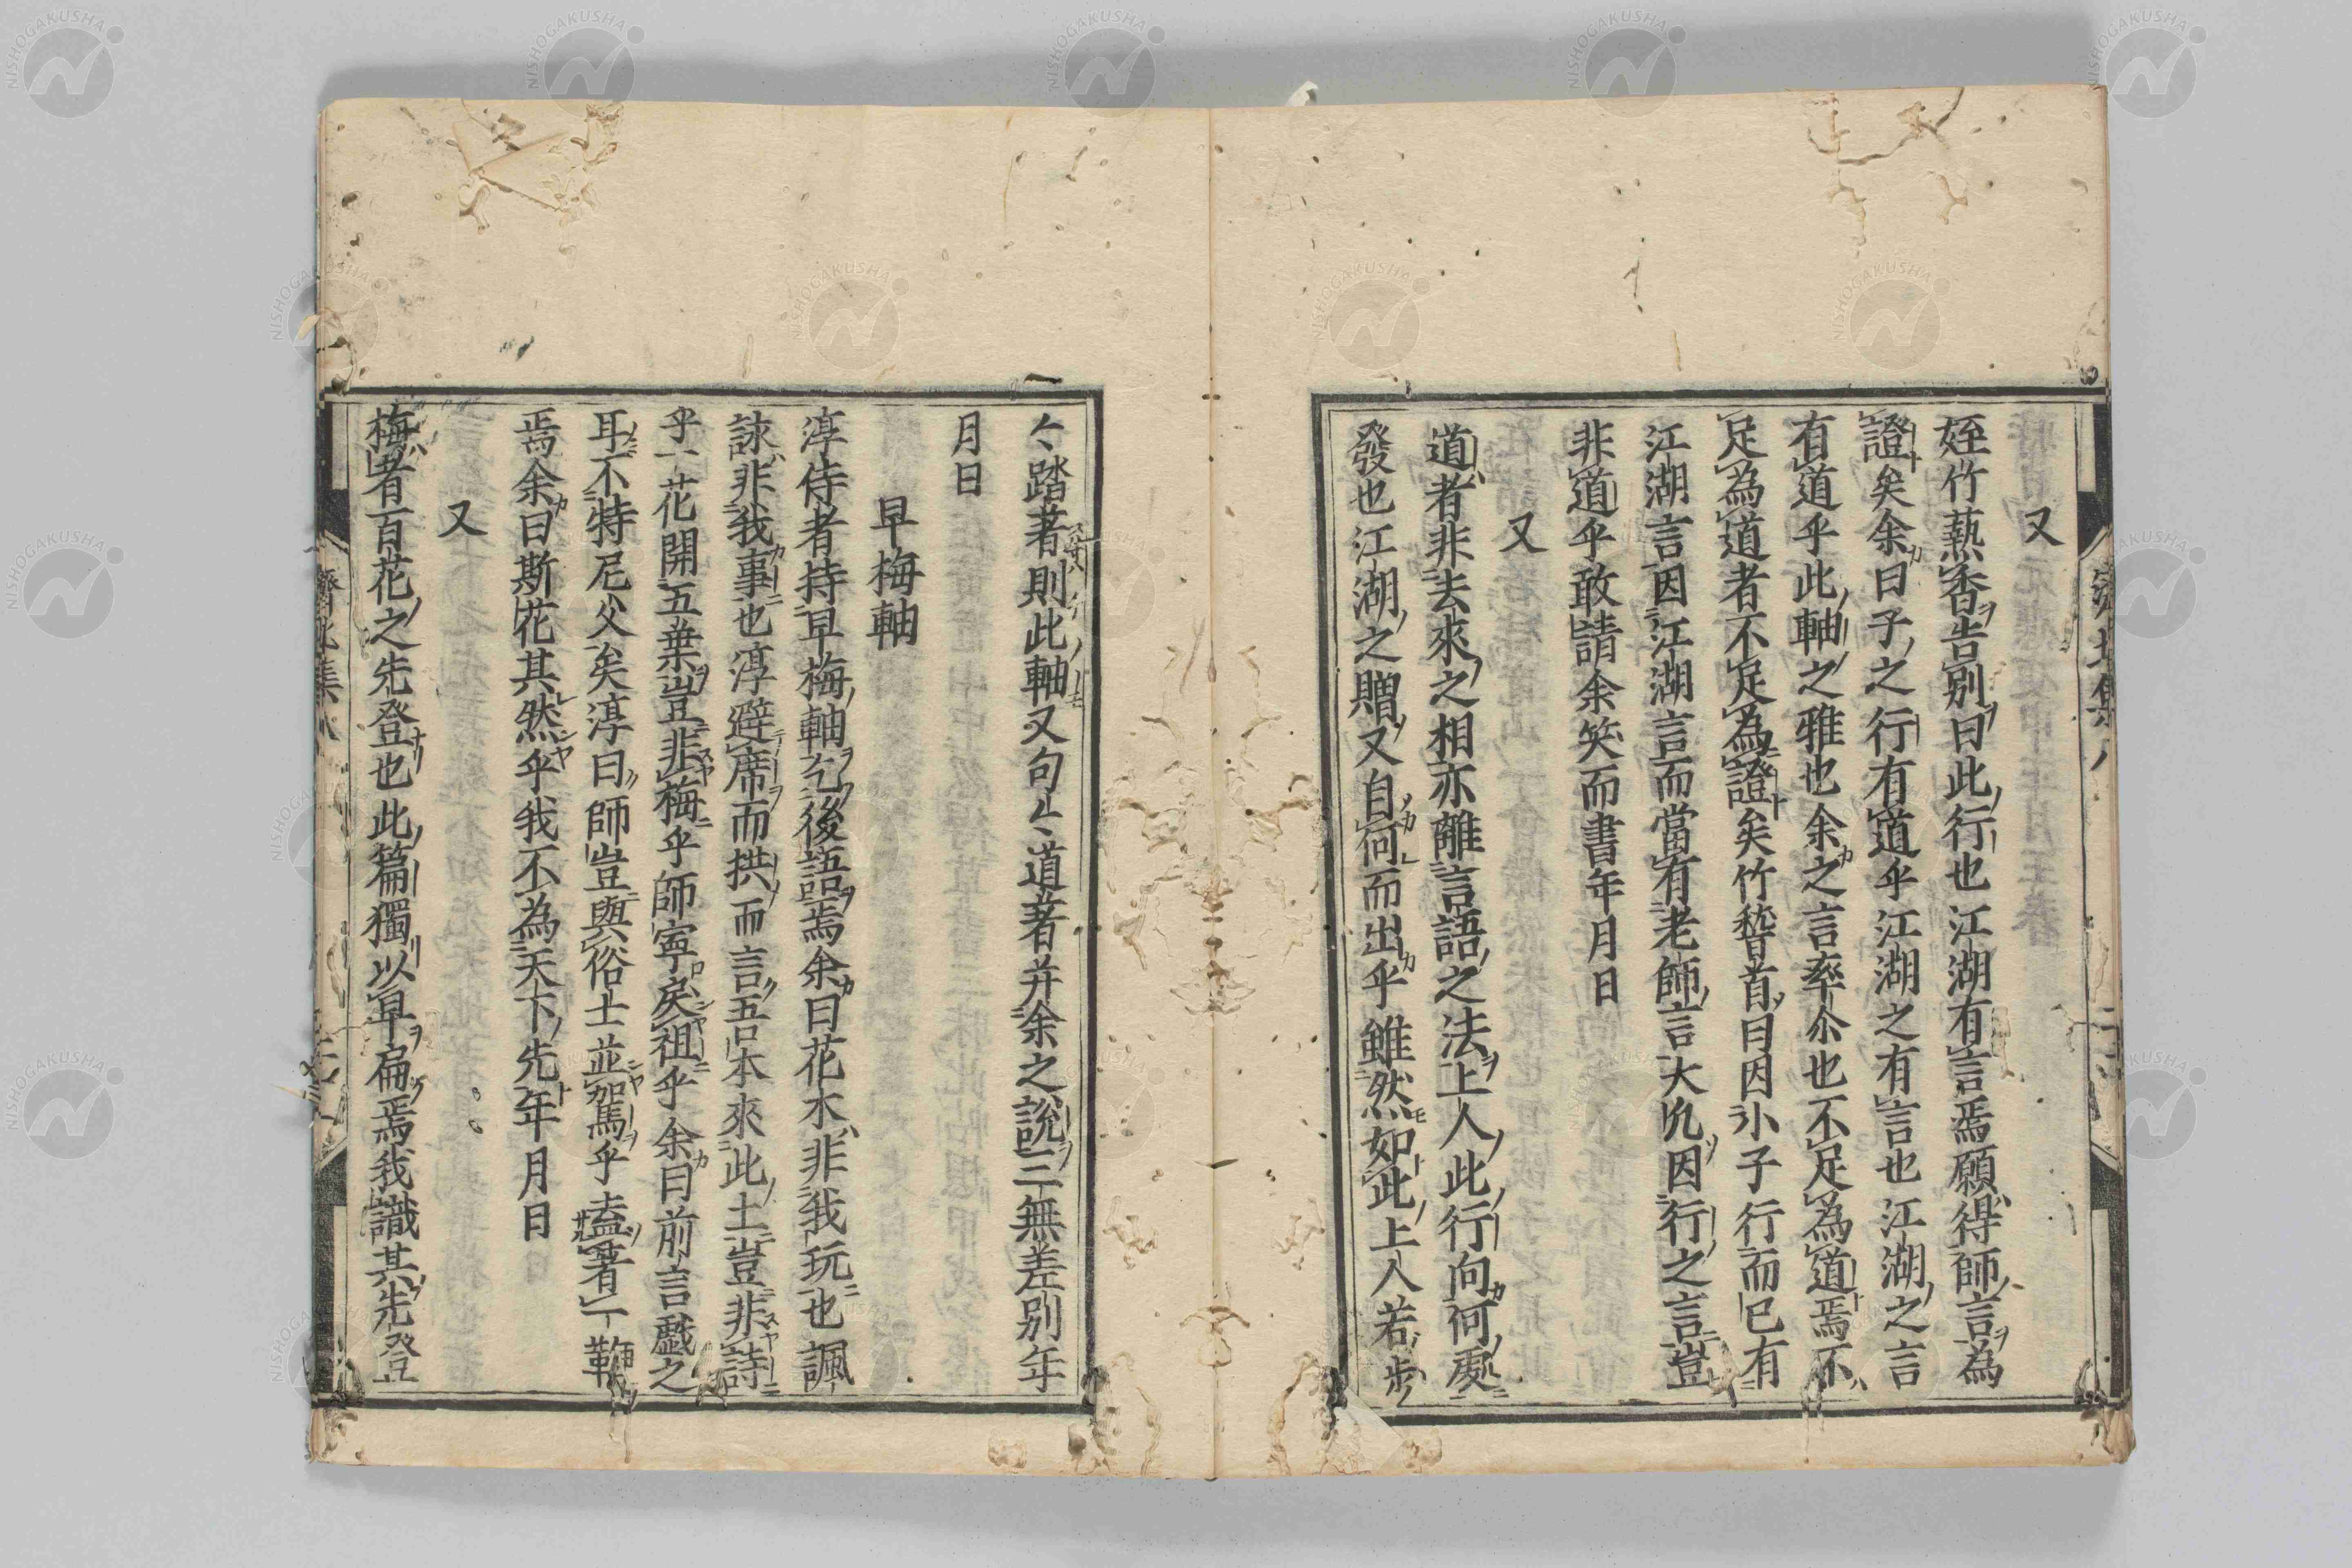 又
姪竹熱香告別曰此行也江湖有言焉願得師言為
證矣余曰子之行有道乎江湖之有言也江湖之言
有道乎此軸之雅也余之言率尒也不足為道焉不
足為道者不足為證矣竹稽首曰因小子行而已有
江湖言因江湖言而當有老師言大凢因行之言豈
非道乎敢請余笑而書年月日
又
道者非去來之相亦離言語之法上人此行向何處
發也江湖之贈又自何而出乎雖然如此上人若步
〻踏著則此軸又句〻道著并余之說三無差別年
月日
早梅軸
淳侍者持早梅軸乞後語焉余曰花木非我玩也諷
詠非我事也淳避席而拱而言吾本來此土豈非詩
乎一花開五葉豈非梅乎師寧戾祖乎余曰前言戲之
耳不特尼父矣淳曰師豈與俗士並駕乎塩著一鞭
焉余曰斯花其然乎我不為天下先年月日
又
梅者百花之先登也此篇獨以早扁焉我識其先登
濟北集八
NISHOGAKUSHA